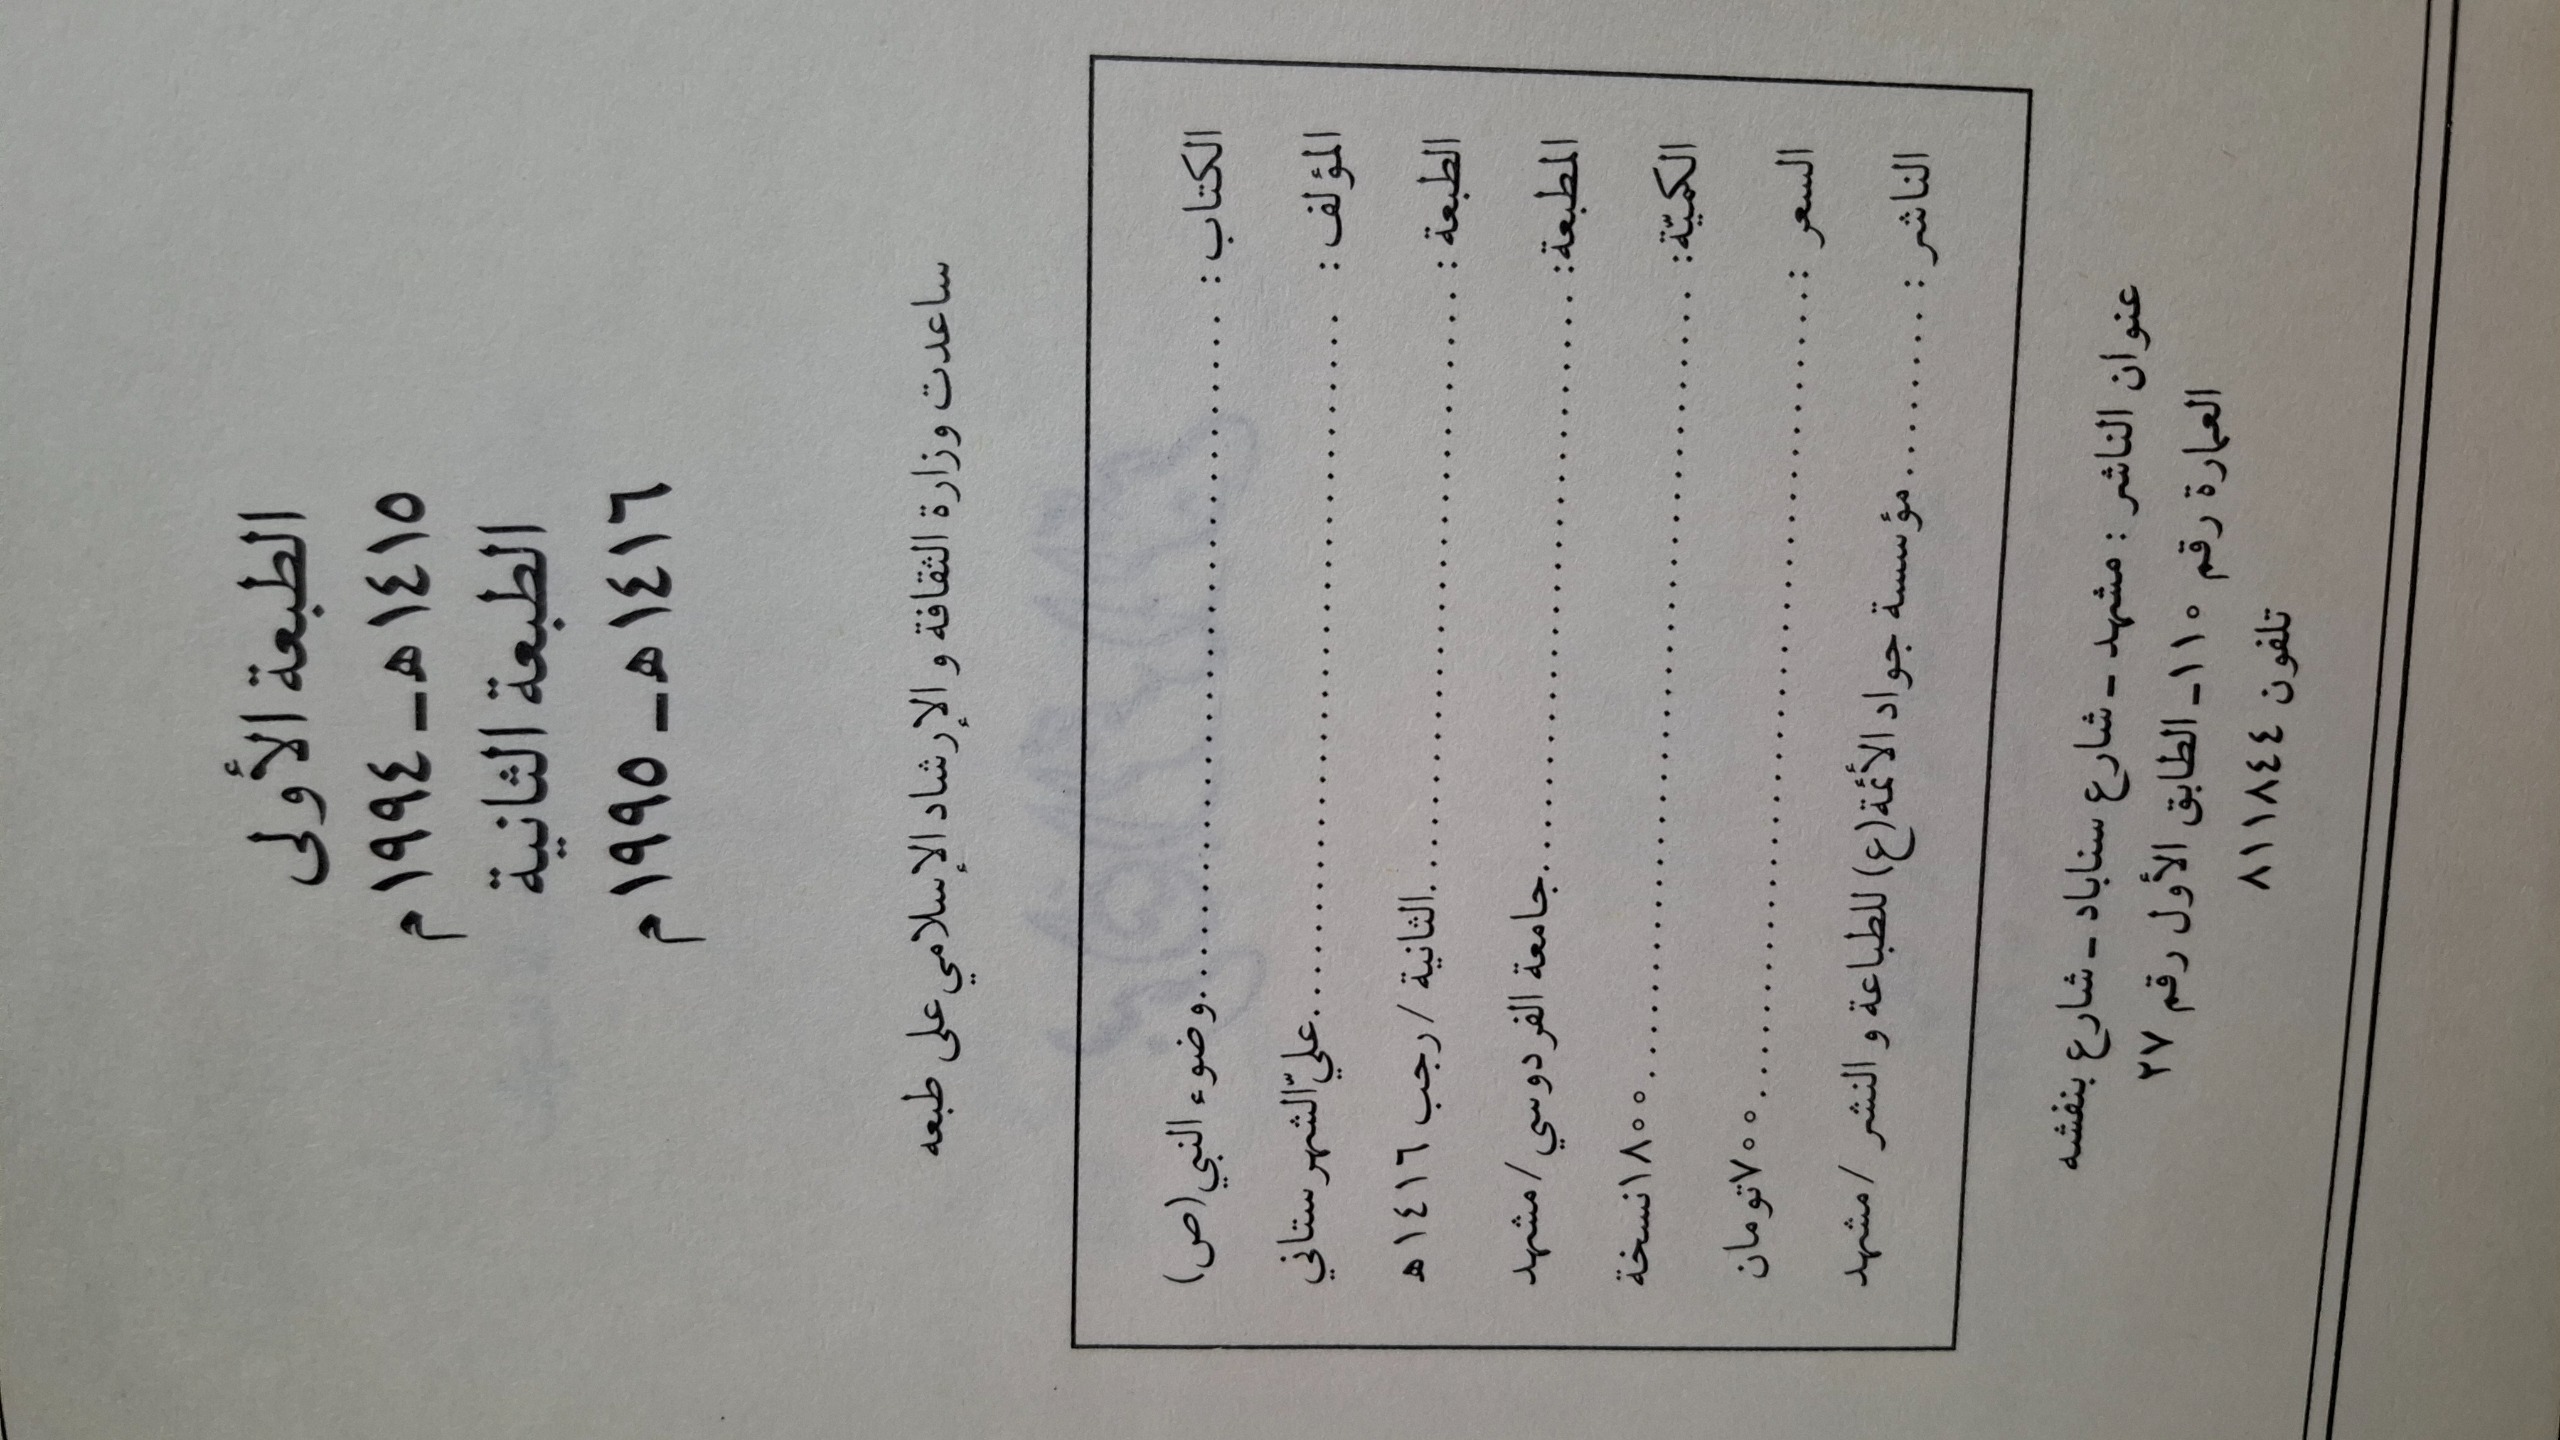 الطبعة الأولى
١٤١٥ هـ ـ ١٩٩٤ م
الطبعة الثانية
١٤١٦ هـ ـ ١٩٩٥ م
ساعدت وزارة الثقافة و الإرشاد الإسلامي على طبعه
الكتاب : ........ وضوء النبي (ص)
المؤلف : ........ عليّ الشهرستاني
الطبعة : ........ الثانية / رجب ١٤١٦ ه
المطبعة: ........ جامعة الفردوسي / مشهد
الكميّة: ........ ١٨٠٠ نسخة
السعر : ........ ٧٠٠ تومان
الناشر : ........ مؤسسة جواد الأئمة (ع) للطباعة و النشر / مشهد
عنوان الناشر : مشهد ـ شارع سناباد ـ شارع بنفشه
العمارة رقم ١١٠ ـ الطابق الأول رقم ٢٧
تلفون ٨١١٨٤٤